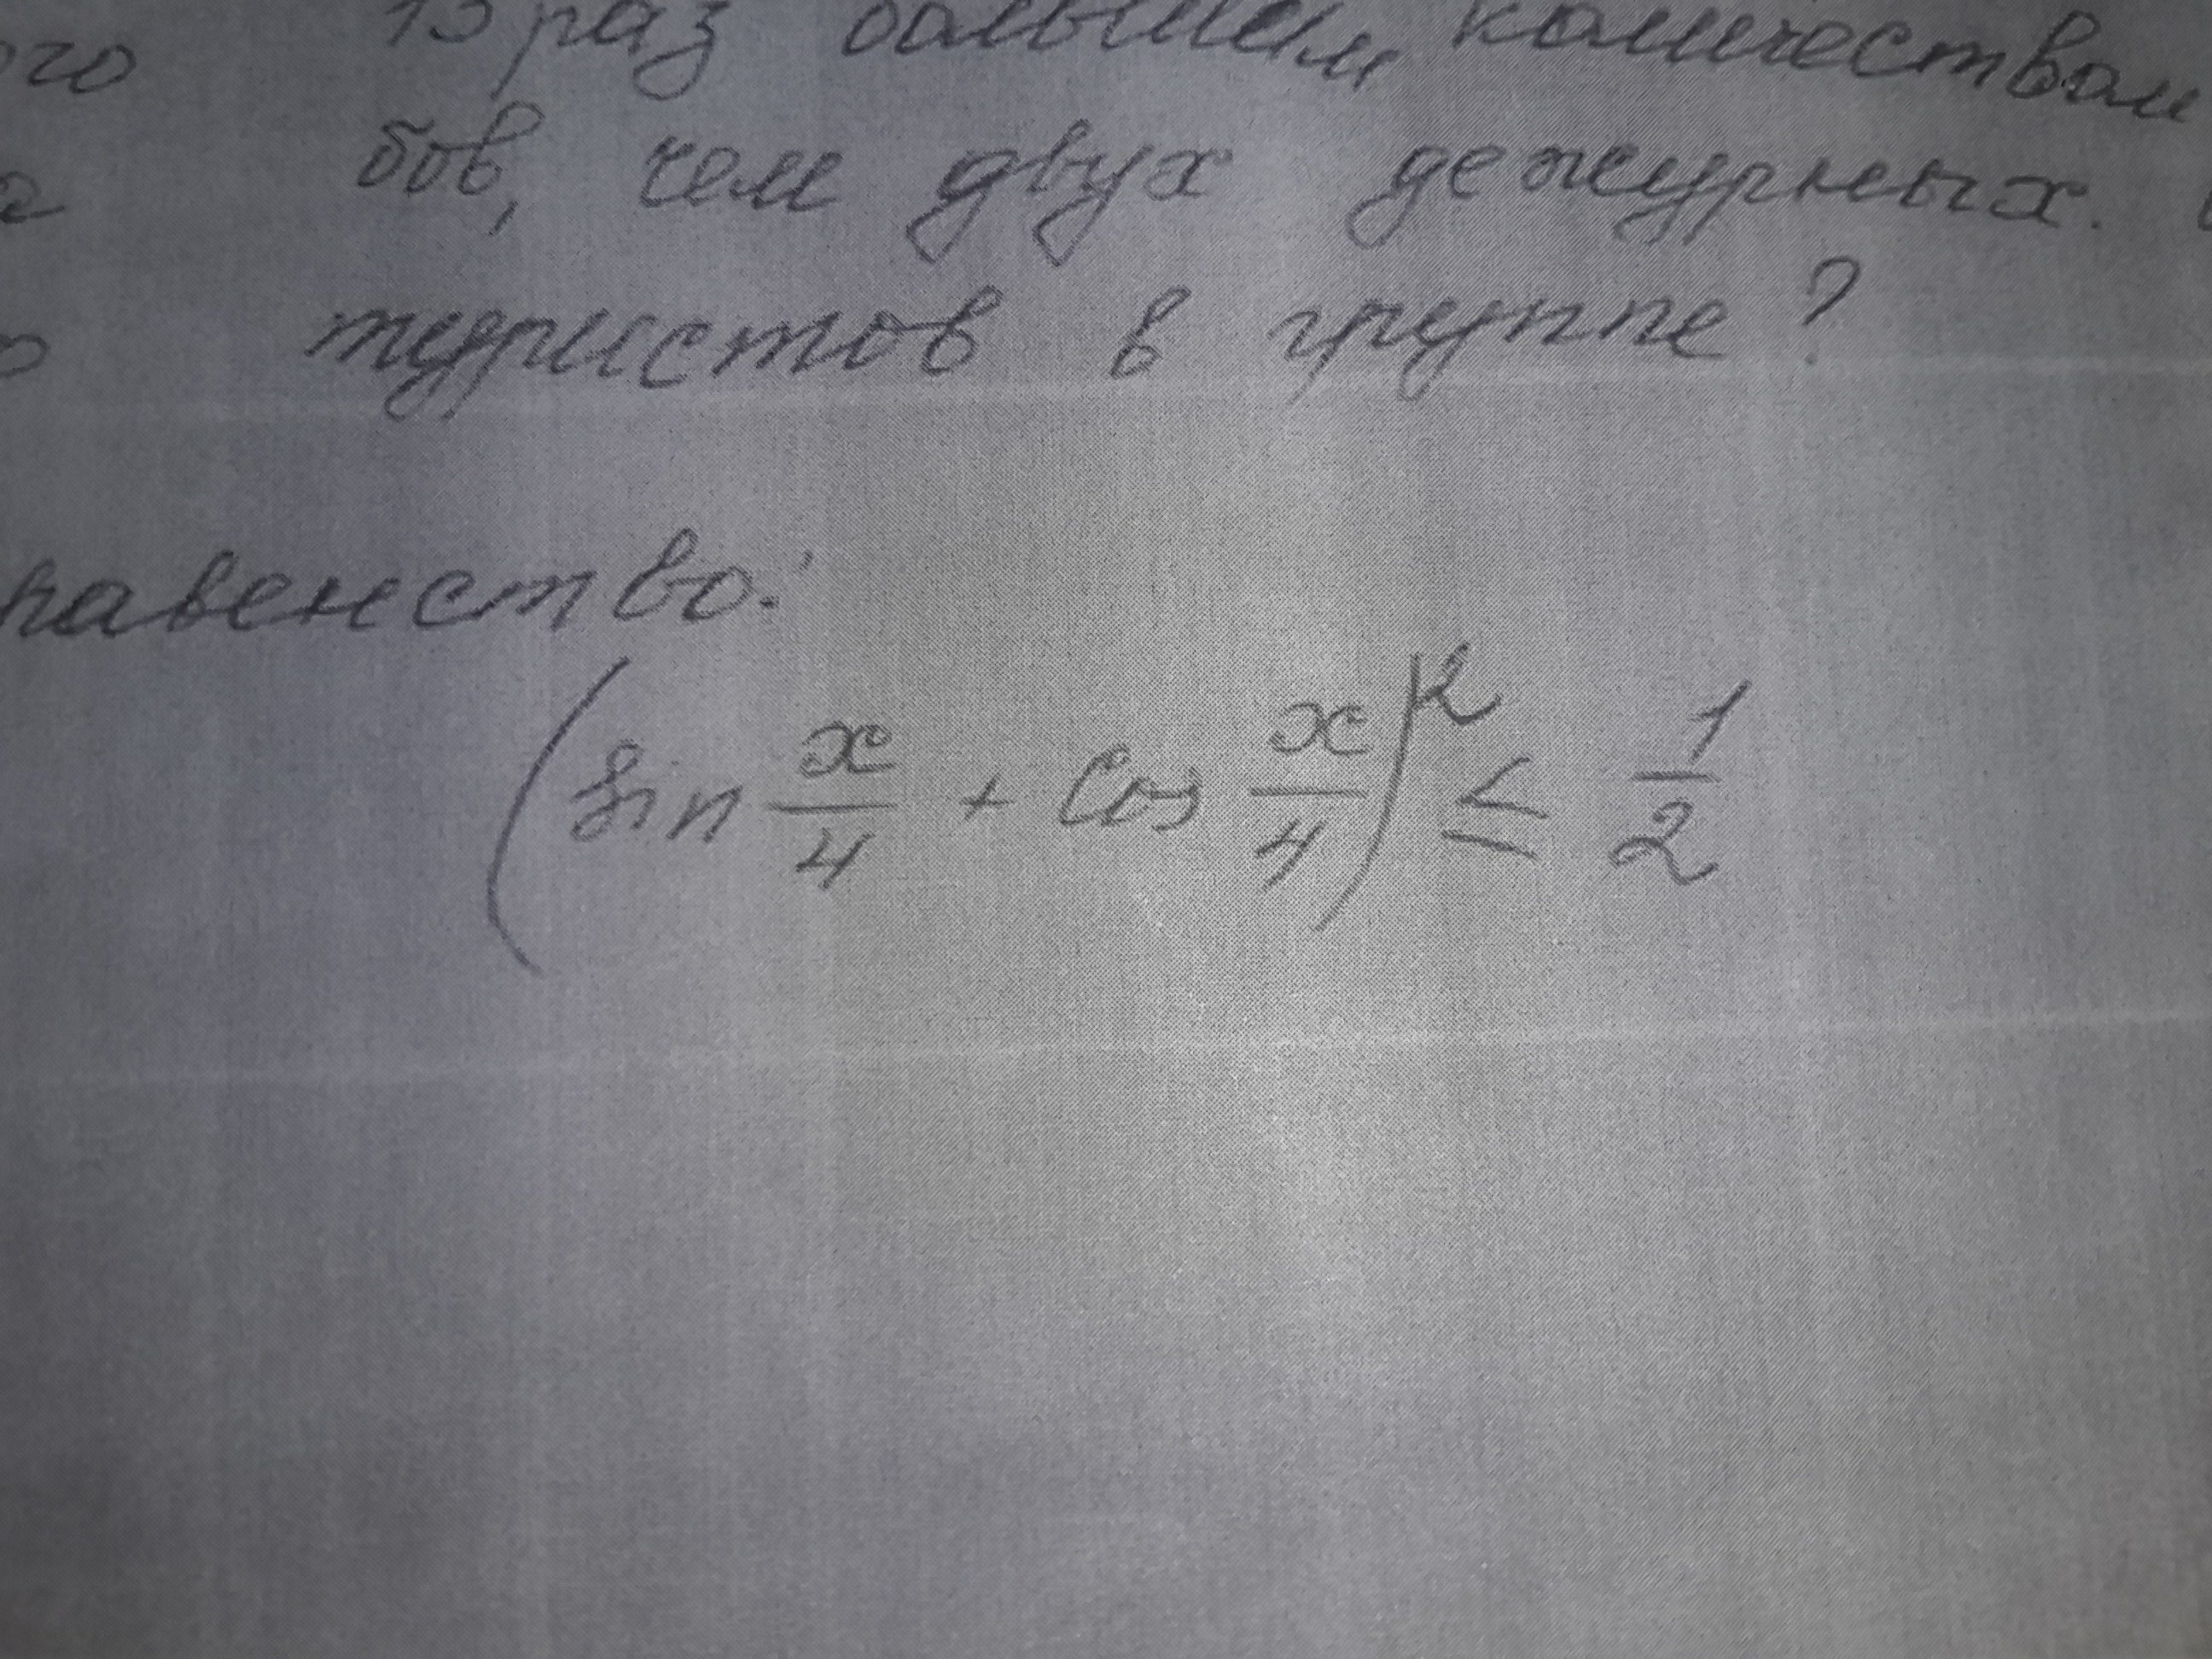 ого 15 раз большим количеством
а бов, чем двух дежурных.
о туристов в группе?
равенство:
(sin x/4 + cos x/4)² ≤ 1/2